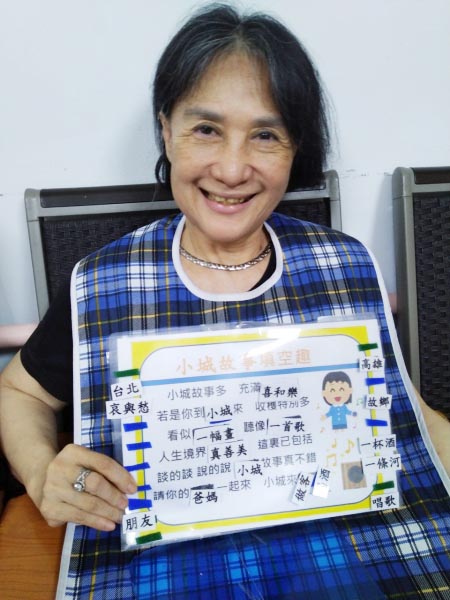 小城故事填空趣
台北
哀與愁
小城故事多 充滿喜和樂
若是你到小城來 收穫特別多
看似一幅畫 聽像一首歌
人生境界真善美 這裏已包括
談的談 說的說 小城故事真不錯
請你的爸媽一起來 小城來
酒
朋友
高雄
故鄉
一杯酒
一條河
唱歌